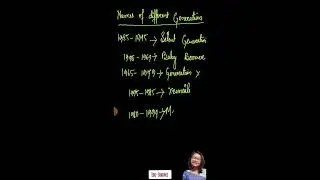 Names of different Generation
1925-1945 → Silent Generation
1946-1964 → Baby Boomer
1965-1979 → Generation X
1975-1985 → Xennials
1980-1994 → M